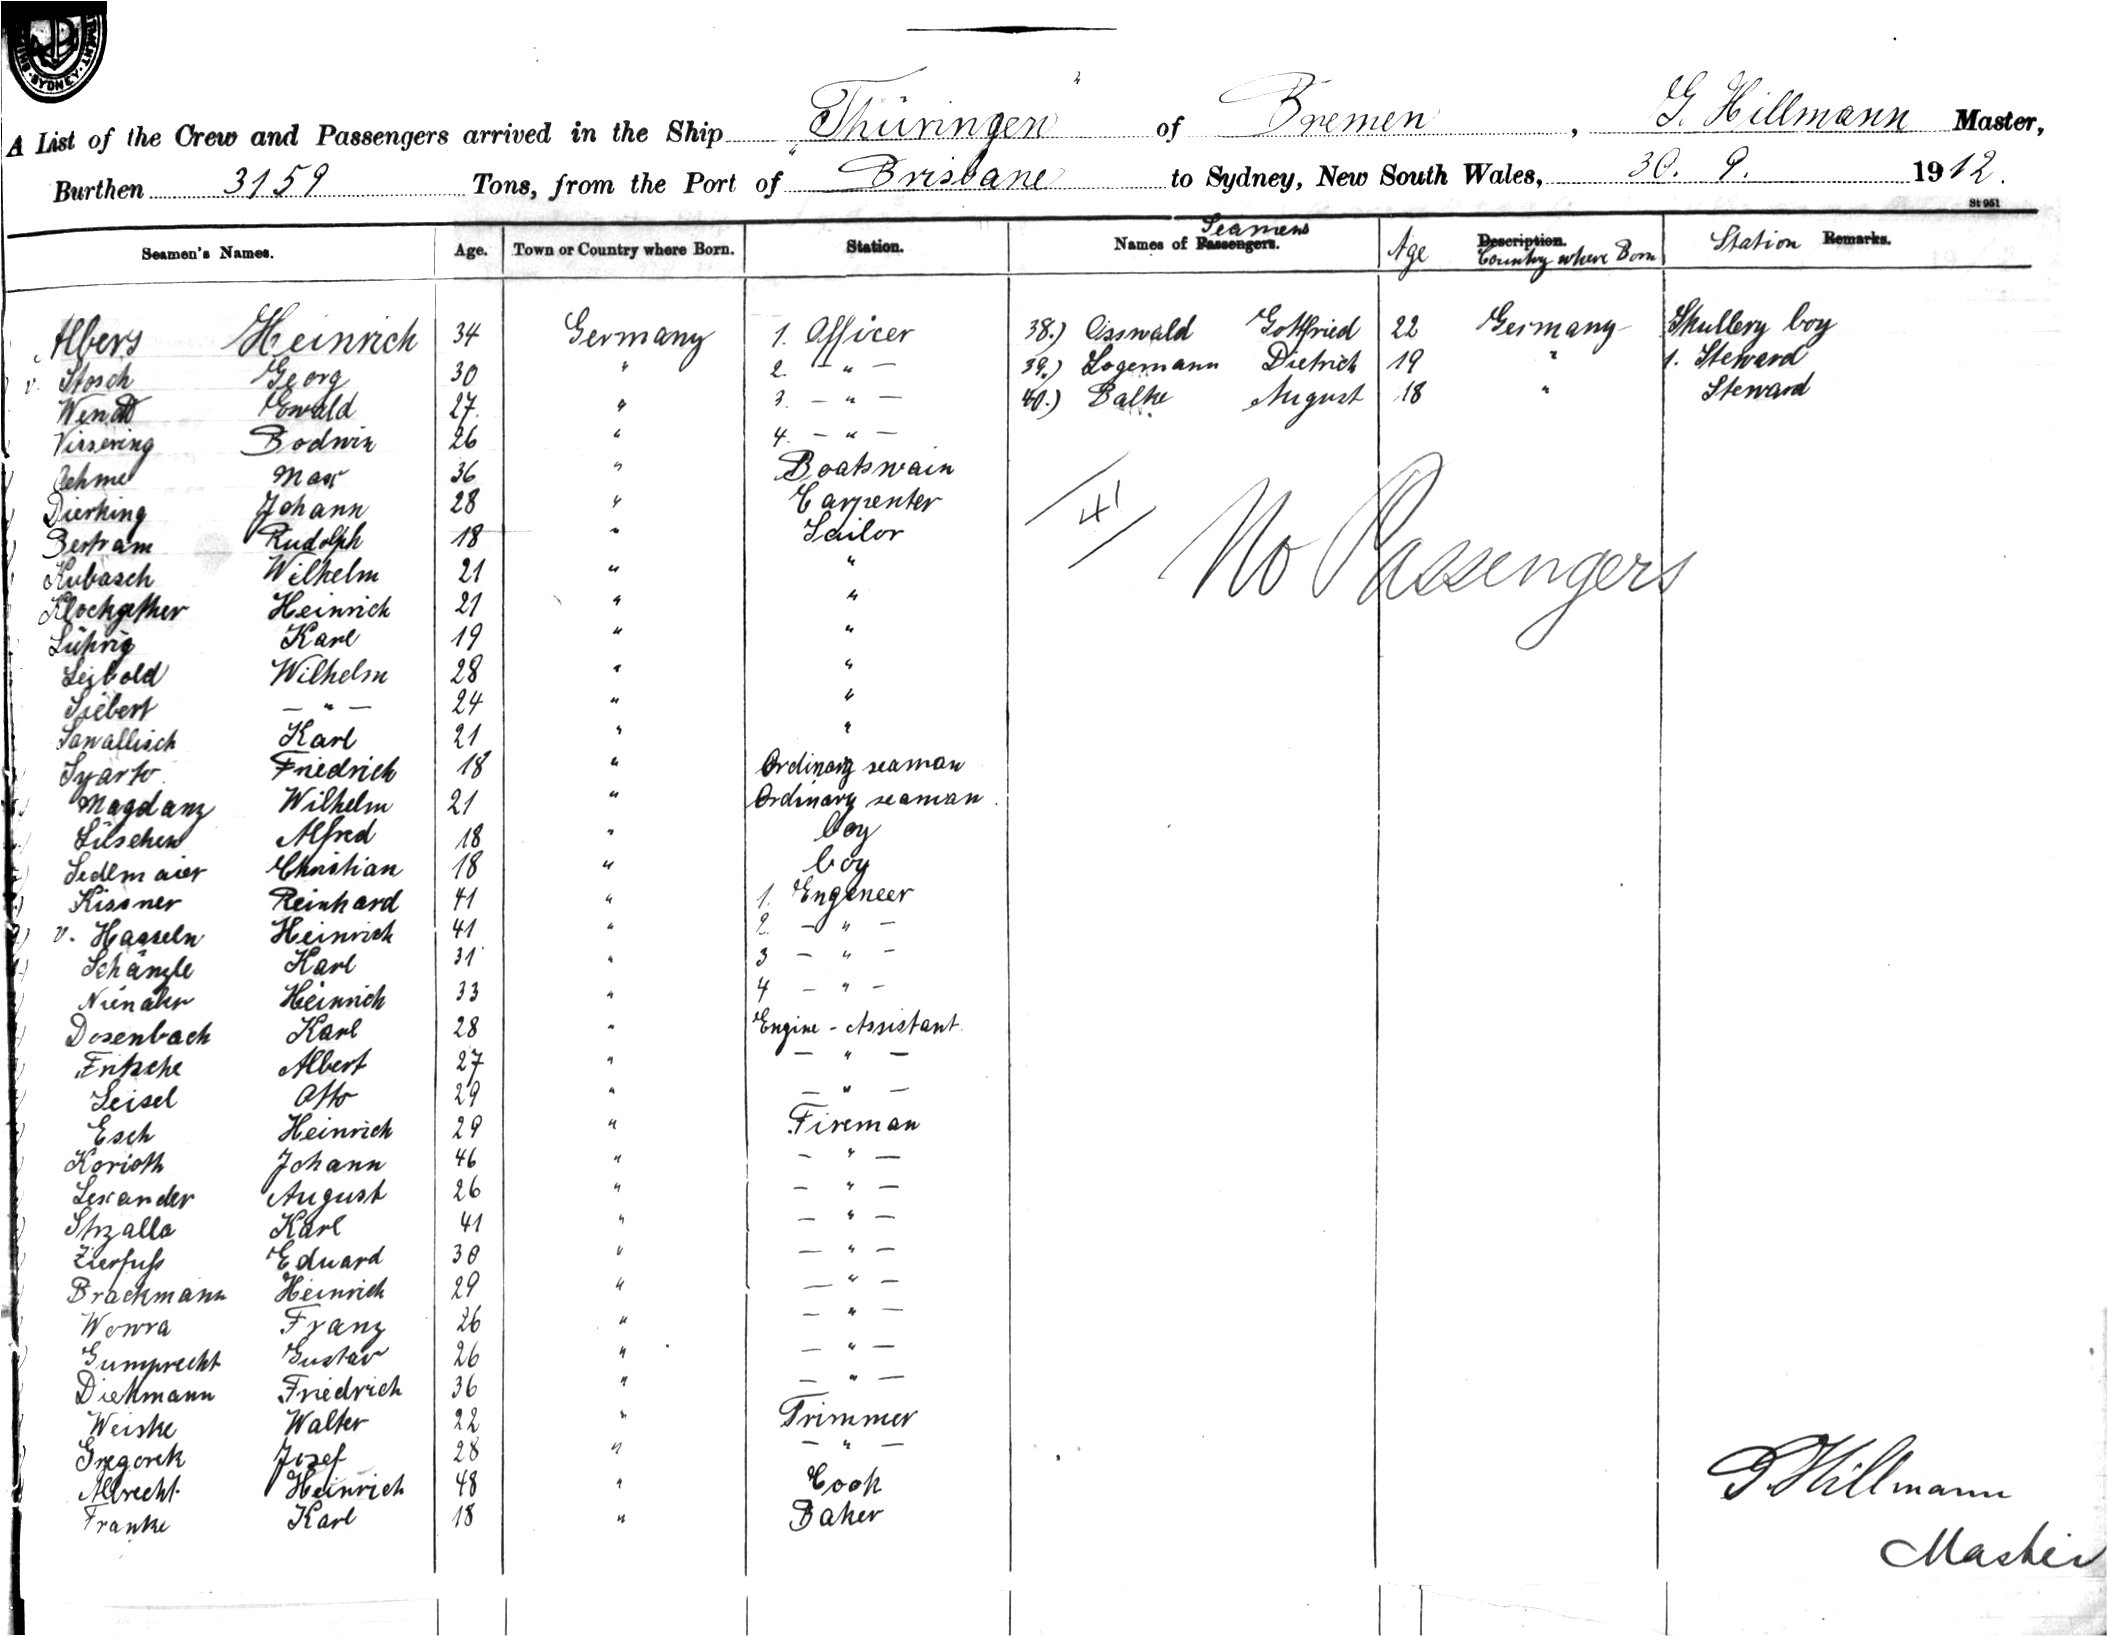 SYDNEY
A List of the Crew and Passengers arrived in the Ship "Thüringen" of Bremen, G. Hillmann Master,
Burthen 3159 Tons, from the Port of Brisbane to Sydney, New South Wales, 30. 9. 1912.
St 951
Seamen's Names. Age. Town or Country where Born. Station. Names of Passengers. Seamens Age Description. Country where Born Station Remarks.
Albers Heinrich 34 Germany 1. Officer 38.) Osswald Gottfried 22 Germany Skullery boy
v. Stosch Georg 30 " 2. — " — 39.) Logemann Dietrich 19 " 1. Steward
Wendt Ewald 27. " 3. — " — 40.) Balke August 18 " Steward
Vissering Bodwin 26 " 4. — " —
Oehme Max 36 " Boatswain
Dierking Johann 28 " Carpenter
Bertram Rudolph 18 " Sailor
Kubasch Wilhelm 21 " "
Klockgether Heinrich 21 " "
Lührig Karl 19 " "
Leibold Wilhelm 28 " "
Siebert — " — 24 " "
Sawallisch Karl 21 " "
Friedrich 18 " Ordinary seaman
Magdanz Wilhelm 21 " Ordinary seaman
Lüschen Alfred 18 " boy
Sedlmaier Christian 18 " boy
Kissner Reinhard 41 " 1. Engeneer
v. Hasseln Heinrich 41 " 2. — " —
Schänzle Karl 31 " 3 — " —
Nienaber Heinrich 33 " 4 — " —
Dosenbach Karl 28 " Engine - Assistant
Fritsche Albert 27 " — " —
Leisel Otto 29 " — " —
Esch Heinrich 29 " Fireman
Korioth Johann 46 " — " —
Lexander August 26 " — " —
Strzalla Karl 41 " — " —
Zierfuß Eduard 30 " — " —
Brackmann Heinrich 29 " — " —
Wowra Franz 26 " — " —
Gumprecht Gustav 26 " — " —
Diekmann Friedrich 36 " — " —
Weiske Walter 22 " Trimmer
Gregorek Josef 28 " — " —
Albrecht Heinrich 48 " Cook
Franke Karl 18 " Baker
41
No Passengers
G. Hillmann
Master